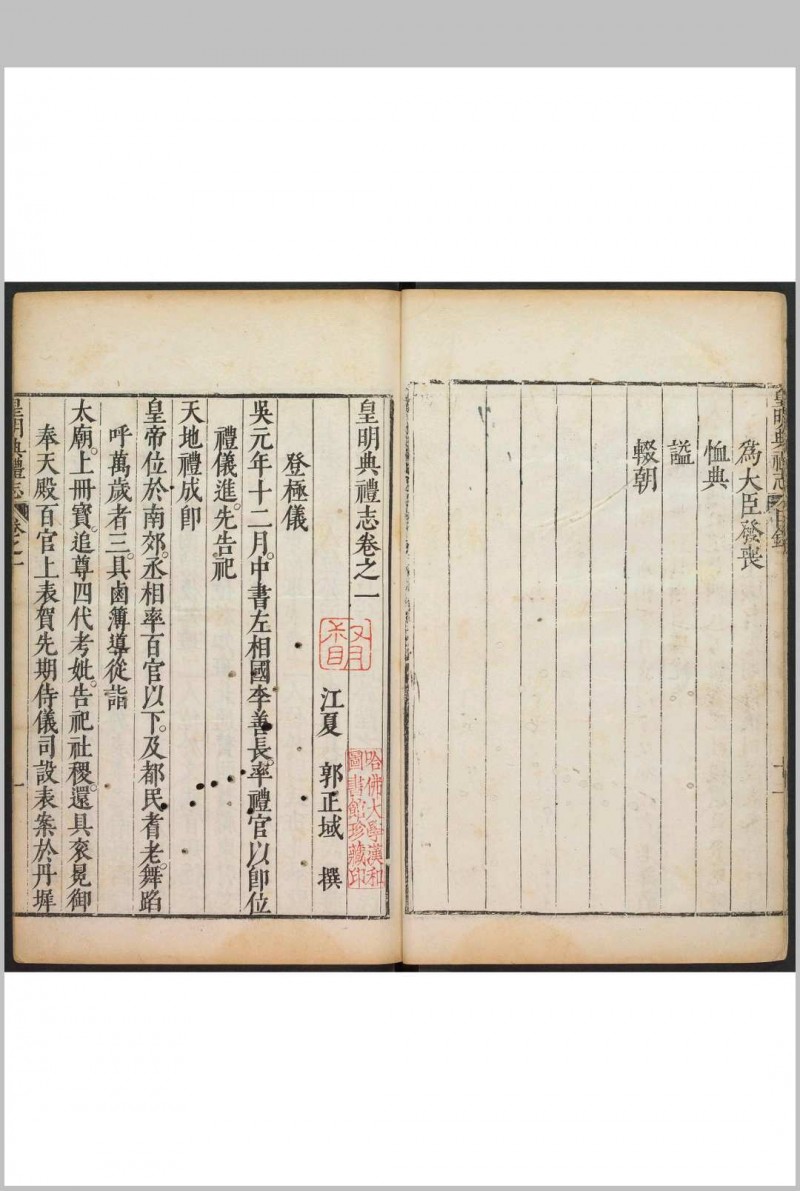 皇明典禮志
目錄
爲大臣發喪
恤典
謚
輟朝
皇明典禮志卷之一
江夏 郭正域 撰
登極儀
吳元年十二月。中書左相國李善長。率禮官以卽位
禮儀進。先告祀
天地禮成卽
皇帝位於南郊。丞相率百官以下。及都民耆老。舞蹈
呼萬歲者三。具鹵簿導從詣
太廟。上冊寶。追尊四代考妣。告祀社稷。還具袞冕御
奉天殿百官上表賀先期侍儀司設表案於丹墀
皇明典禮志 卷之一
一
哈佛大學漢和
圖書館珍藏印